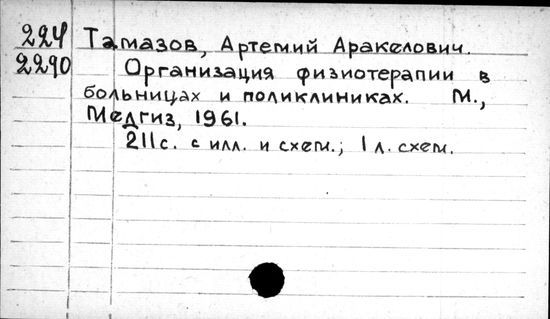 224 Тамазов, Артемий Аракелович.
2290 Организация физиотерапии в
больницах и поликлиниках. М.,
Медгиз, 1961.
211с. с илл. и схем.; 1 л. схем.